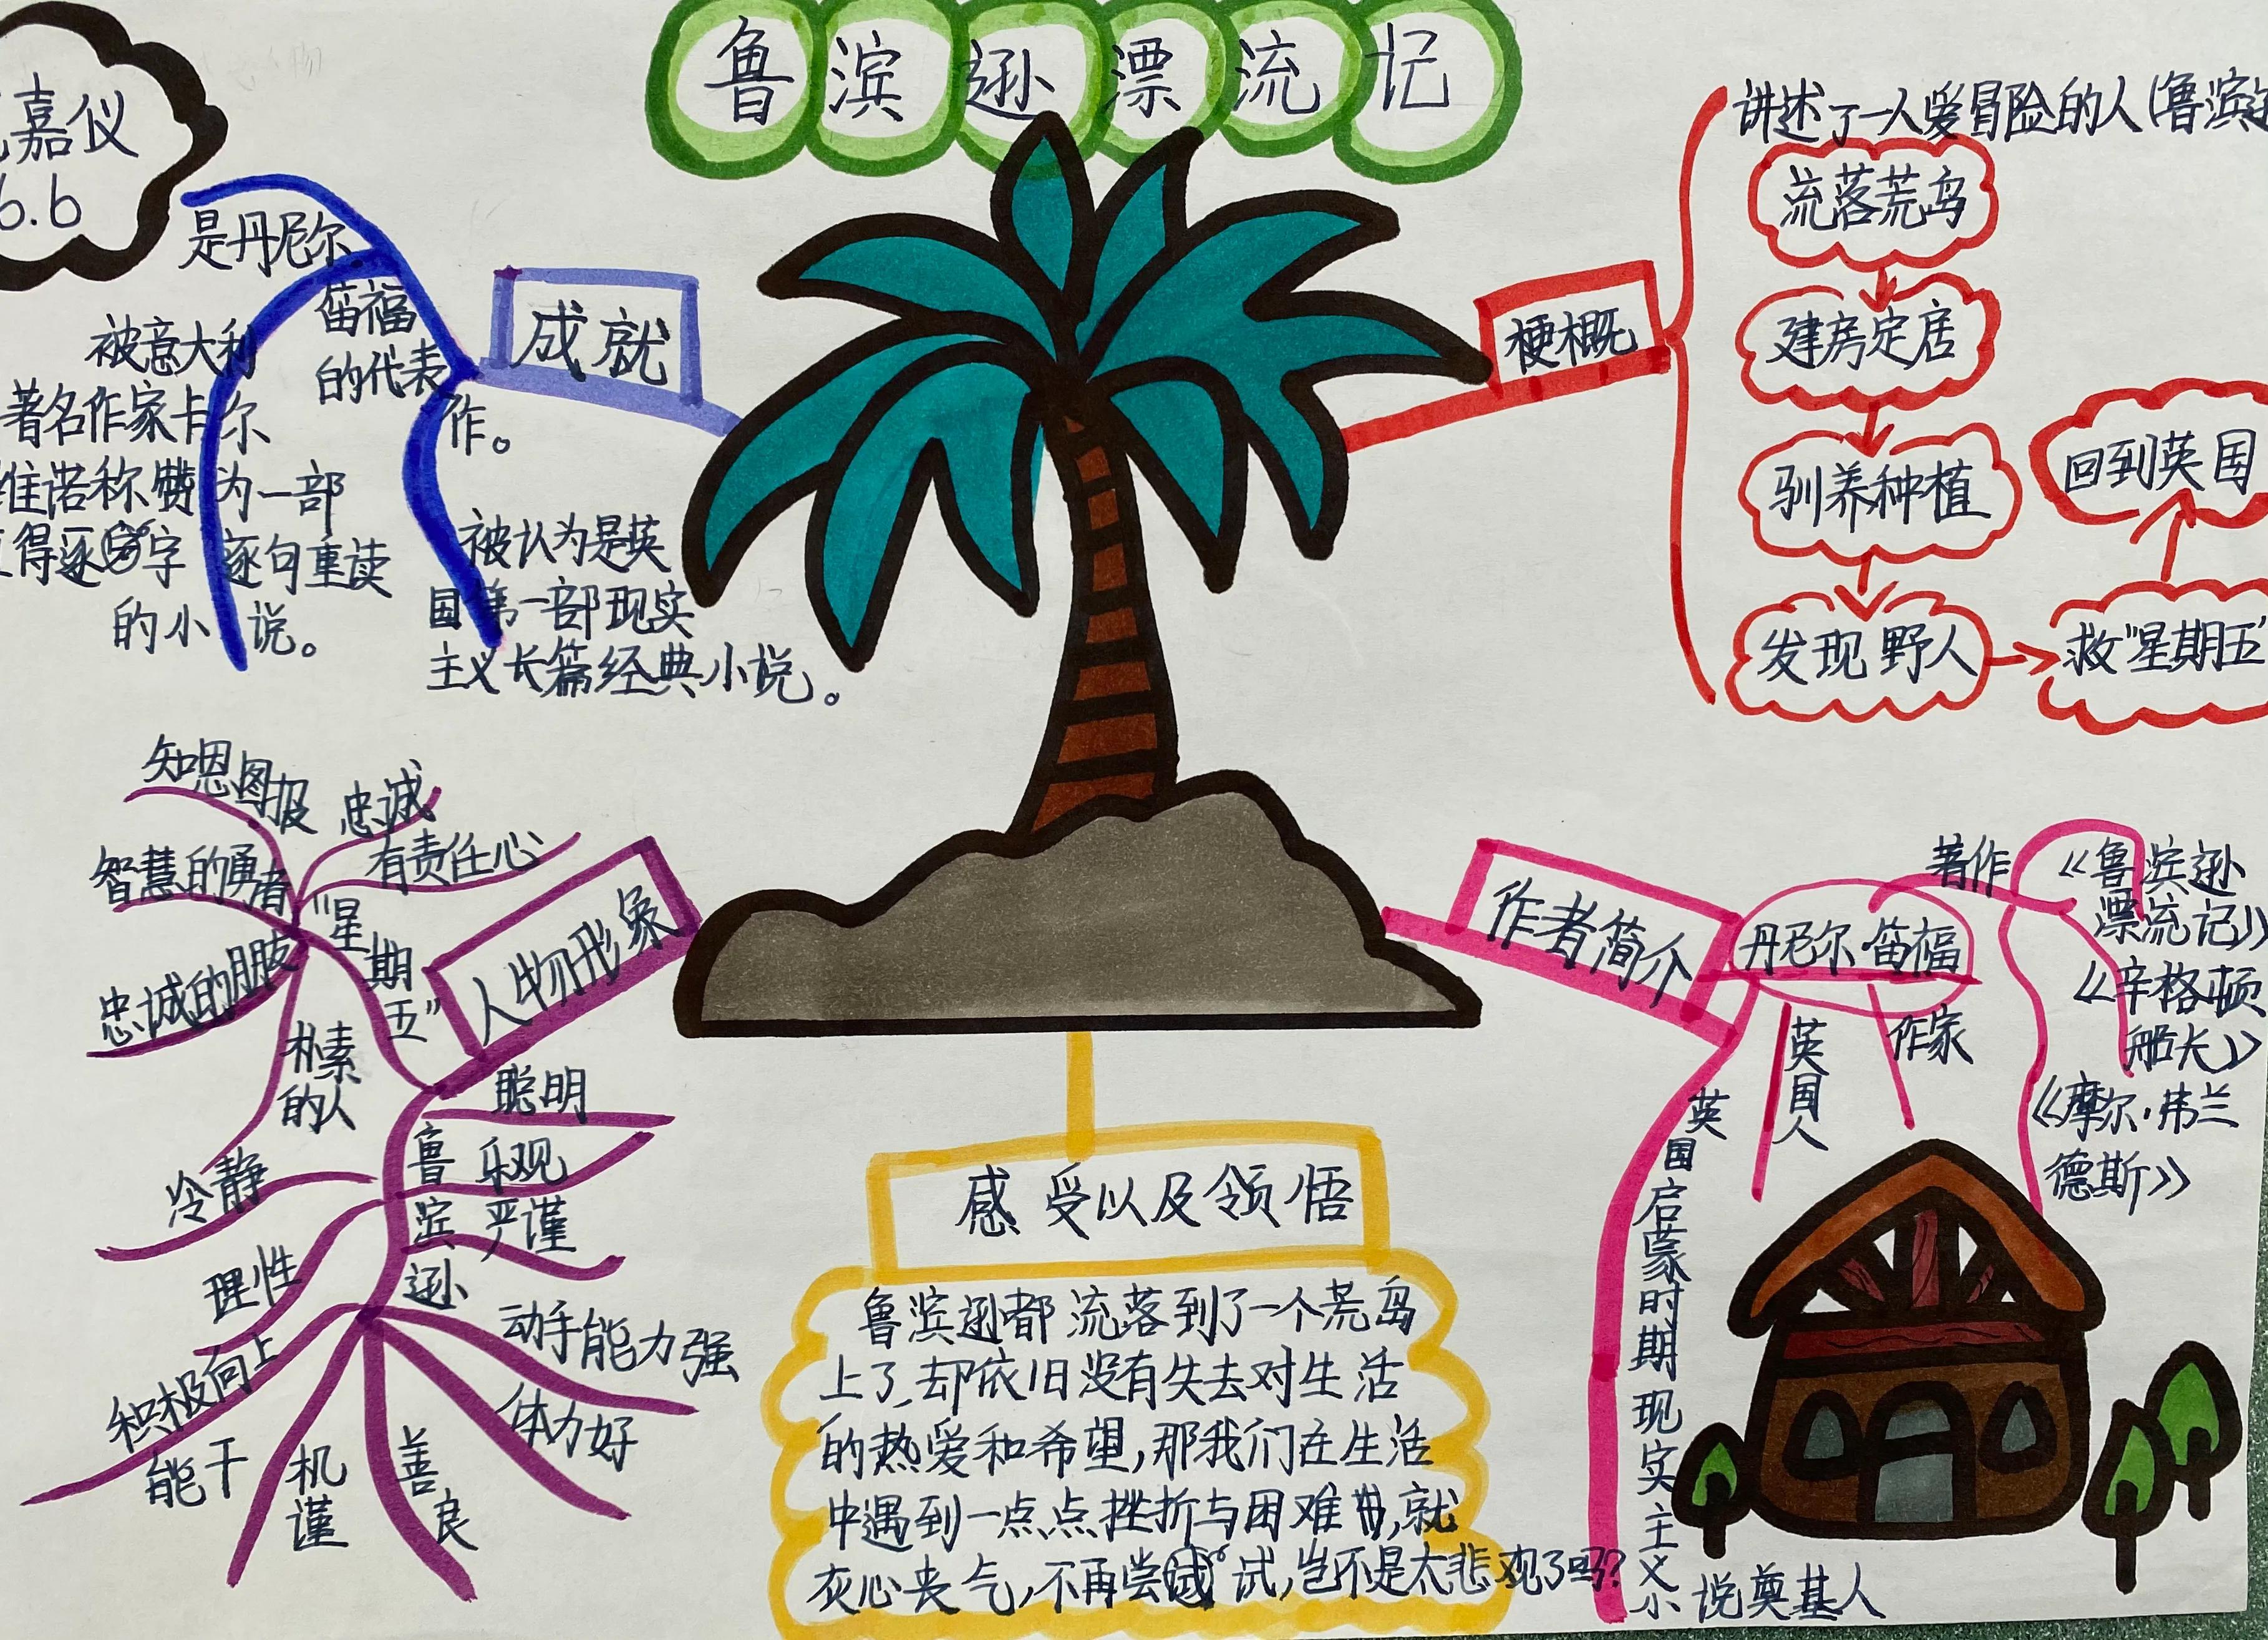 鲁滨逊漂流记
嘉仪
6.6
成就
是丹尼尔
笛福
的代表
作。
被意大利
著名作家卡尔
维诺称赞为一部
得逐字逐句重读
的小说。
被认为是英
国第一部现实
主义长篇经典小说。
梗概
讲述了一人爱冒险的人(鲁滨逊
流落荒岛
建房定居
驯养种植
发现野人
救"星期五"
回到英国
人物形象
"星期五"
知恩图报
忠诚
有责任心
智慧的勇者
忠诚的朋友
朴素
的人
鲁滨逊
聪明
乐观
严谨
冷静
理性
积极向上
能干
机谨
善良
体力好
动手能力强
作者简介
丹尼尔·笛福
著作
《鲁滨逊
漂流记》
《辛格顿
船长》
《摩尔·弗兰
德斯》
英国人
作家
英国启蒙时期现实主义小说奠基人
感受以及领悟
鲁滨逊都流落到了一个荒岛
上了,却依旧没有失去对生活
的热爱和希望,那我们在生活
中遇到一点点挫折与困难,就
灰心丧气,不再尝试,岂不是太悲观了吗?